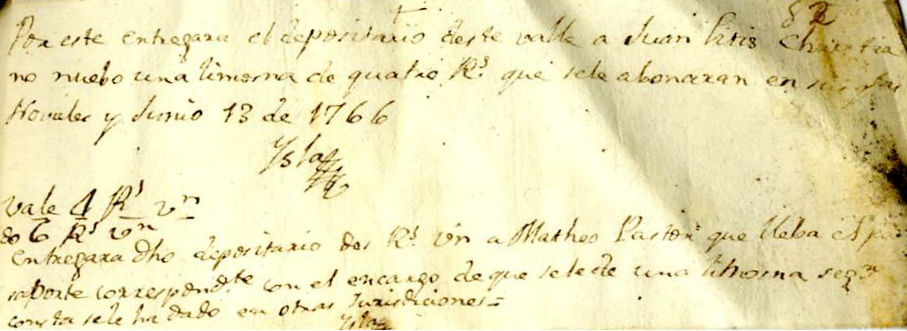 Por este entregara el depositario deste valle a Juan Luis Christia
no nuebo una limosna de quatro Rs. que sele abonaran en sus
Noveles y Junio 13 de 1766
Ysla
Vale 4 Rs vn
do 6 Rs vn
Entregara dho depositario dos Rs. vn a Matheo Pastor que lleba el pa
saporte correspondte con el encargo de que sele de una limosna segn
consta sele ha dado en otras Jurisdiciones =
Ysla